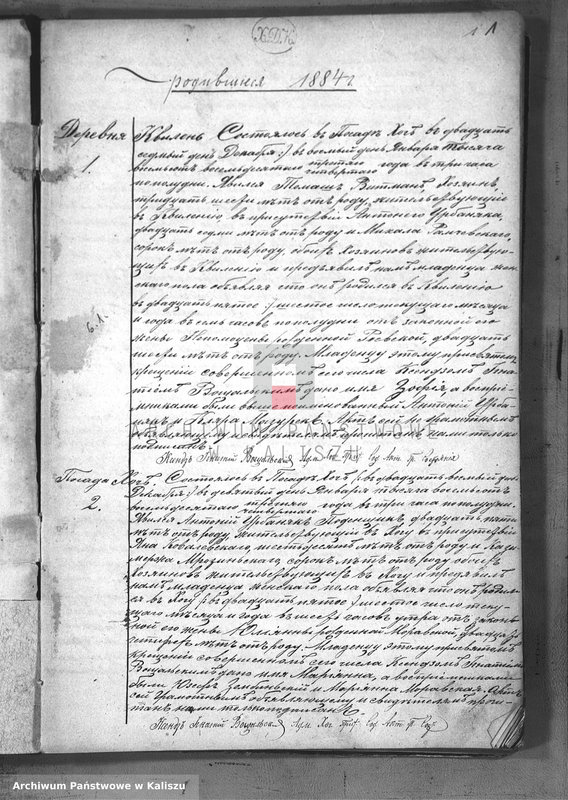 1
родившиеся 1884 г
Деревня Квилень Состоялось въ Посадѣ Хочъ въ двадцать
1. седмый день Декабря :/ въ восьмый день Января тысяча
восемьсотъ восемьдесятъ третьяго четвертаго года въ три часа
пополудни. Явился Томашъ Витманъ, Хозяинъ,
тридцать шесть лѣтъ отъ роду, жительствующій
въ Квиленію, въ присутствіи Антонего Урбаняка,
двадцать седми лѣтъ отъ роду и Михала
сорокъ лѣтъ отъ роду, обоихъ Хозяиновъ жительствую-
щихъ въ Квиленію и предъявилъ намъ младенца жен-
скаго пола объявляя что онъ родился въ Квиленію
въ двадцать пятое :/ шестое число текущаго мѣсяца
и года въ семь часовъ пополудни отъ законной его
6.1.
жены Непомуцены рожденной двадцать
шесть лѣтъ отъ роду. Младенцу этому при святомъ
крещеніи совершенномъ сего числа Ксендзомъ Игна-
тіемъ дано имя Зофія, а воспрі-
емниками были выше поименованный Антоній Урба-
някъ и
объявляющему и свидѣтелямъ прочитанъ нами только
подписанъ.
Ксендзъ Игнатій
Посада Хочъ. Состоялось въ Посадѣ Хочъ въ двадцать восьмый день
2. Декабря :/ въ девятый день Января тысяча восемьсотъ
восемьдесятъ третьяго четвертаго года въ три часа пополудни.
Явился Антоній Урбанякъ Поденщикъ двадцать пяти
лѣтъ отъ роду, жительствующій въ Хочу въ присутствіи
Яна Ковалевскаго, шестьдесятъ лѣтъ отъ роду и Кази-
мержа сорокъ лѣтъ отъ роду обоихъ
Хозяиновъ жительствующихъ въ Хочу и предъявилъ
намъ младенца женскаго пола объявляя что онъ родил-
ся въ Хочу въ двадцать пятое :/ шестое число теку-
щаго мѣсяца и года въ шесть часовъ утра отъ закон-
ной его жены Юліянны рожденной Моравской двадцать
четырехъ лѣтъ отъ роду. Младенцу этому при святомъ
крещеніи совершенномъ сего числа Ксендзомъ Игнатіемъ
дано имя Маріянна, а воспріемниками
были Юзефъ и Маріянна Моравская. Актъ
сей объявляющему и свидѣтелямъ прочи-
танъ нами только подписанъ
Ксендзъ Игнатій
ARCHIWUM PAŃSTWOWE
W KALISZU
Archiwum Państwowe w Kaliszu